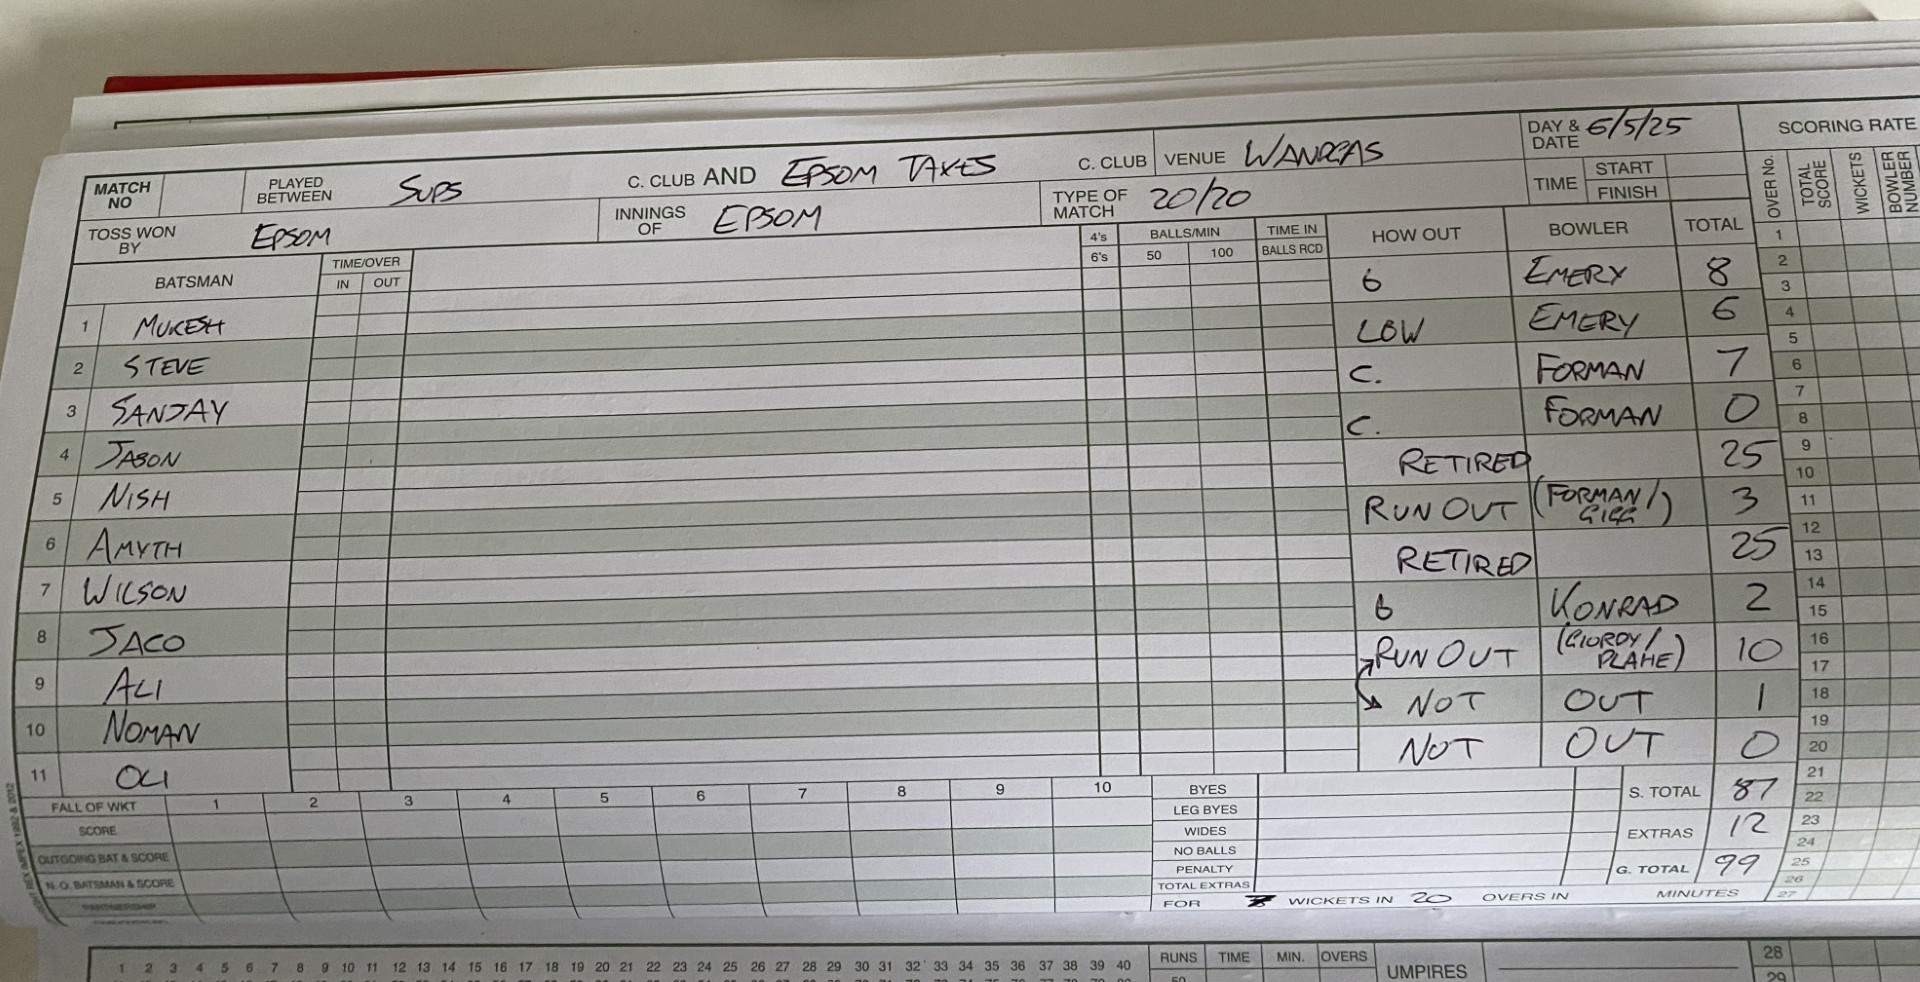 MATCH NO
PLAYED BETWEEN SUPS C. CLUB AND EPSOM TAXES C. CLUB
VENUE WANDGAS
DAY & DATE 6/5/25
TOSS WON BY EPSOM
INNINGS OF EPSOM
TYPE OF MATCH 20/20
TIME START
FINISH
BATSMAN TIME/OVER IN OUT 4's 6's BALLS/MIN 50 100 TIME IN BALLS RCD HOW OUT BOWLER TOTAL
1 MUKESH 6 EMERY 8
2 STEVE LBW EMERY 6
3 SANJAY C. FORMAN 7
4 JASON C. FORMAN 0
5 NISH RETIRED 25
6 AMYTH RUN OUT (FORMAN/GIGG) 3
7 WILSON RETIRED 25
8 JACO b KONRAD 2
9 ALI RUN OUT (GIORDY/PLAHE) 10
10 NOMAN NOT OUT 1
11 OLI NOT OUT 0
FALL OF WKT 1 2 3 4 5 6 7 8 9 10
SCORE
OUTGOING BAT & SCORE
N.O. BATSMAN & SCORE
PARTNERSHIP
BYES
LEG BYES
WIDES
NO BALLS
PENALTY
TOTAL EXTRAS
S. TOTAL 87
EXTRAS 12
G. TOTAL 99
FOR WICKETS IN 20 OVERS IN MINUTES
SCORING RATE
OVER No. TOTAL SCORE WICKETS BOWLER NUMBER
1
2
3
4
5
6
7
8
9
10
11
12
13
14
15
16
17
18
19
20
21
22
23
24
25
26
27
1 2 3 4 5 6 7 8 9 10 11 12 13 14 15 16 17 18 19 20 21 22 23 24 25 26 27 28 29 30 31 32 33 34 35 36 37 38 39 40
RUNS TIME MIN. OVERS
50
UMPIRES
28
29